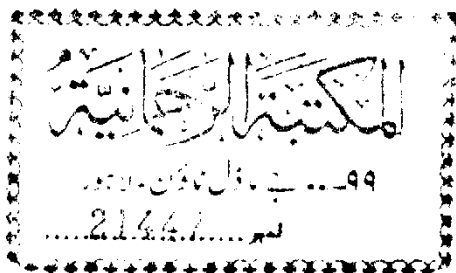 المكتبة الرحمانية
۹۹... جے ماڈل ٹاؤن - لاہور
نمبر.....21447.....